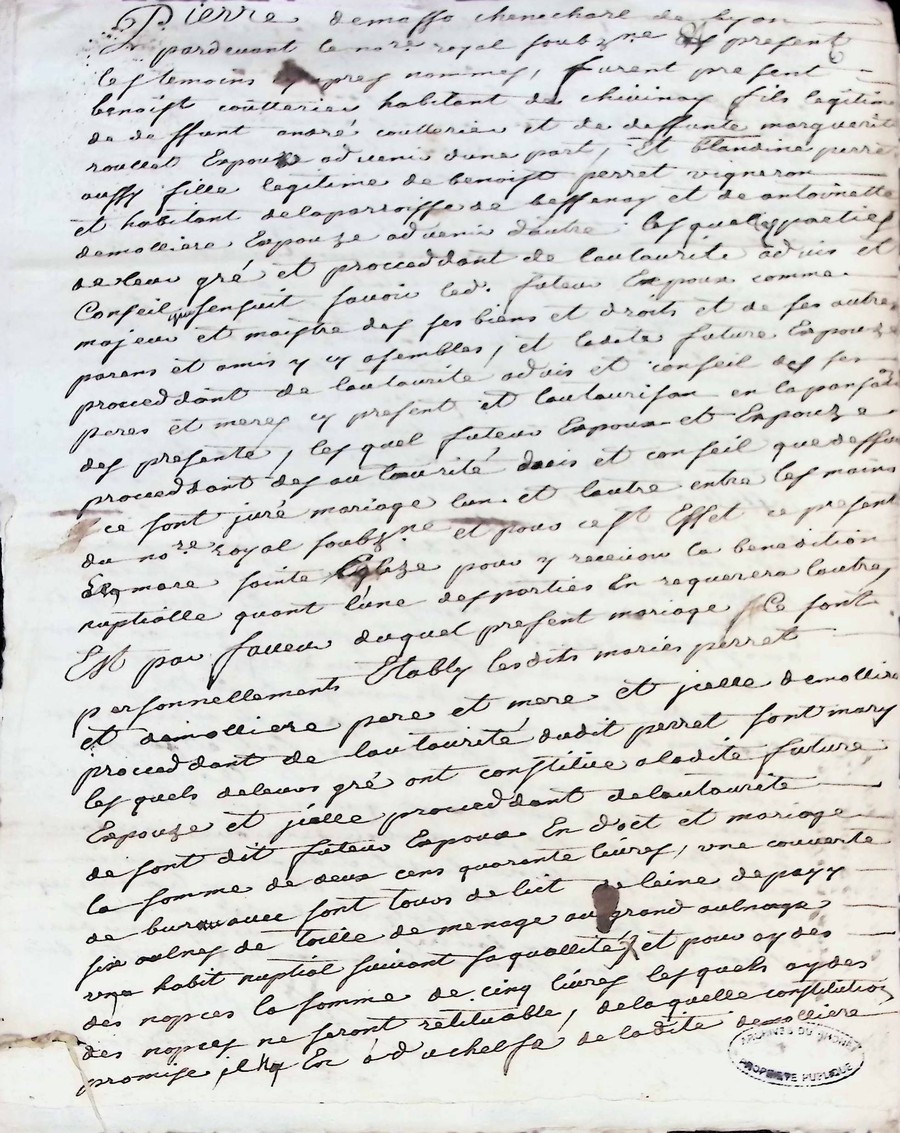 Pierre demasso chenechare de lyon
pardevant le no.re royal soubz.ne Es present
les temoins cy apres nommes, furent present
benoist coutterier habitant de chivinay fils legitime
de deffunt andré coutterier et de deffunte marguerite
roullet Expoux advenir dune part, Et blandine perret
aussy fille legitime de benoist perret vigneron
et habitant delaparroisse de bessenay et de antoinette
demolliere Expouze advenir dautre lesquels parties
de leur gré et proceddant de lautaurité advis et
Conseil que sensuit savoir led. futeur Expoux comme
majeur et maistre des ses biens et droits et de ses autres
parans et amis y cy asembles, et ladite future Expouze
proceddant de lautaurité advis et conseil des ses
peres et meres cy present et lautaurisan en la
des presente, lesquel futeur Expoux et Expouze
proceddant des autaurité davis et conseil que dessus
ce sont juré mariage lun et lautre entre les mains
du no.re royal soubz.ne et pour cest Effet ce present
En mare sainte Eglize pour y recevoir la benedition
nuptialle quant lune des parties En requerera lautre,
Est par faveur duquel present mariage Ce sont
personnellements Etably lesdits maries perret
et demolliere pere et mere et jcelle demolliere
proceddant de lautaurité dudit perret sont mary
lesquels deleurs gré ont constitué aladite future
Expouze et jcelle proceddant delautaurité
de sont dit futeur Expoux En doet et mariage
la somme de deux cens quarente livres, une couverte
de bure avec sont tours de lict de leine de pays
six aulnes de toille de menage au grand aulnage
une habit nuptial suivant sa quallité, et pour aydes
des nopces la somme de cinq livres lesquels aydes
des nopces ne seront restituable, de laquelle constitution
promise il En a de deladite demolliere
ARCHIVES DU RHONE
PROPRIETE PUBLIQUE